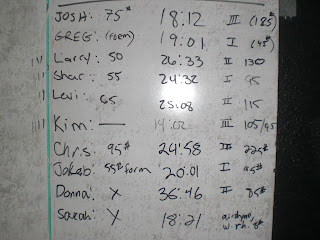 JOSH: 75# 18:12 III (125#)
GREG: (form) 19:01 I (45#)
Larry: 50 26:33 II 130
Shar: 55 24:32 I 95
Levi: 65 25:08 II 115
Kim: — 14:02 III 105/95
Chris: 95# 24:58 III 225#
Jakob: 55# form 20:01 I 95#
Donna: X 36:46 II 85#
Sarah: X 18:21 airdyne,